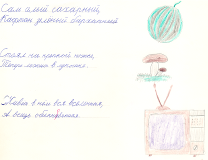 Сам алый сахарный,
Кафтан зелёный бархатный.
Стоял на крепкой ножке,
Теперь лежит в лукошке.
Живёт в нём вся вселенная,
А вещь обыкновенная.